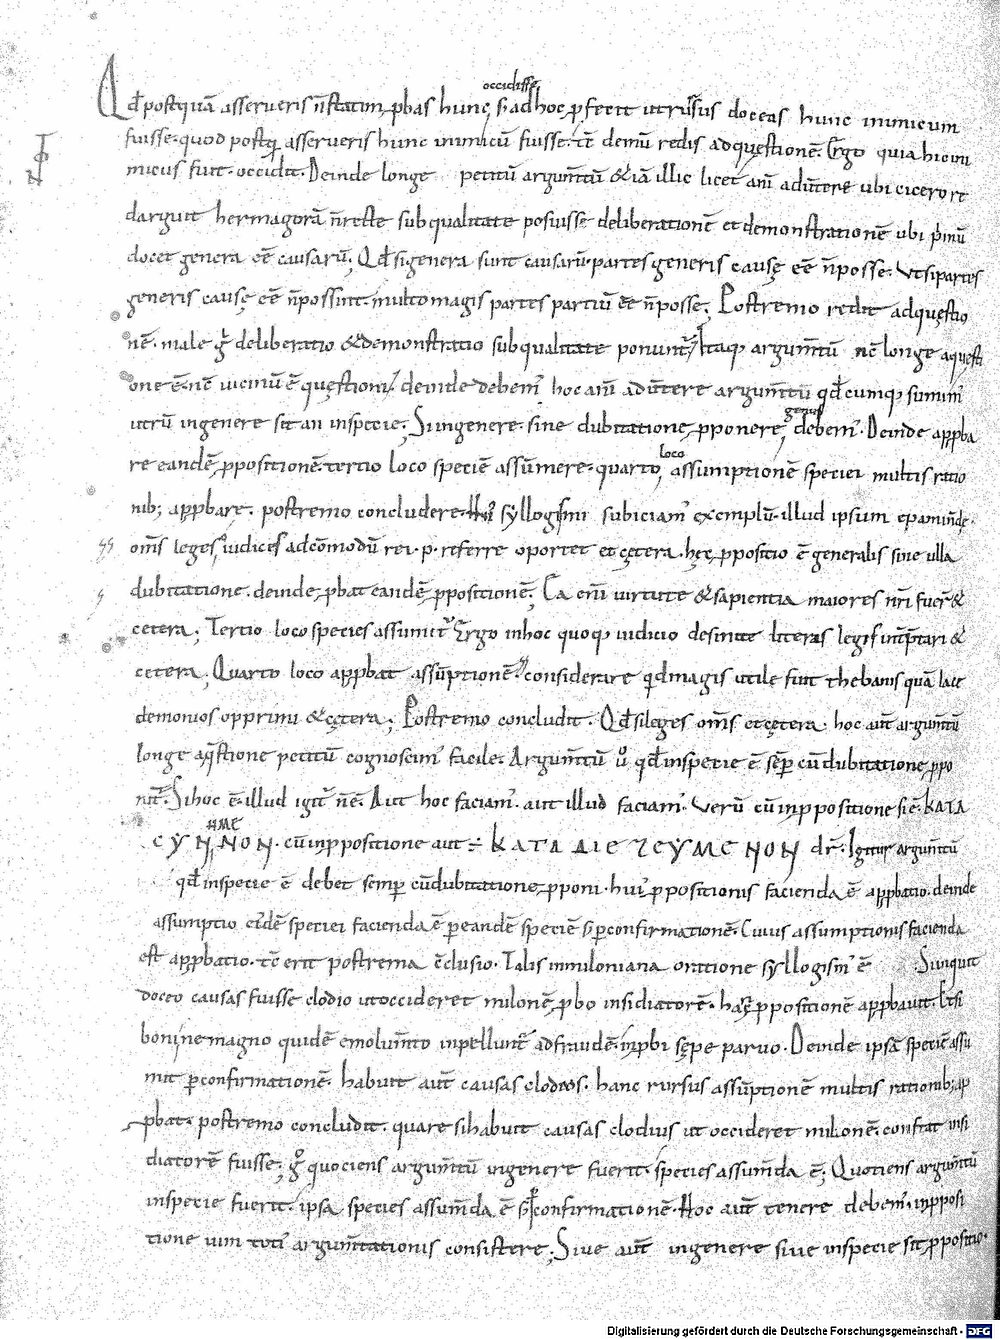 occidisse
Qđ postquā asserueris n̄ statim ꝓbas hunc s; ad hoc ꝓficit ut rursus doceas hunc inimicum
fuisse. quod postq̄ asserueris hunc inimicū fuisse. tc̄ demū redis ad questionē. Ergo quia hic ini
micus fuit. occidit. Deinde longe petitū argum̄tū & iā illic licet am̄ aduertere ubi cicero re
darguit hermagorā n̄ recte sub qualitate posuisse deliberationē et demonstrationē ubi p̄mū
docet genera eē causarū; Qđ si genera sunt causarū. partes generis causę eē n̄ posse. Ut si partes
generis causę eē n̄ possint. multo magis partes partiū eē n̄ posse; Postremo redit ad questio
nē. male ḡ deliberatio & demonstratio sub qualitate ponunt̄. Itaq; argum̄tū nē longe a questi
one ē. nē uicinū ē questioni deinde debem' hoc am̄ aduertere argum̄tū qđcumq; sumim'
genus
utrū in genere sit an in specie. Si in genere. sine dubitatione ꝓponere debem'. Deinde apꝓba
loco
re eandē ꝓpositionē. tertio loco speciē assumere. quarto assumptionē speciei multis ratio
nib; apꝓbare. postremo concludere. syllogismi subiciam' exemplū. illud ipsum epaminde.
om̄s leges iudices ad cōmodū rei. p. referre oportet et cętera. hęc ꝓpositio ē generalis sine ulla
dubitatione. deinde ꝓbat eandē ꝓpositionē; Ea eni uirtute & sapientia maiores nr̄i fuer̄ &
cetera; Tertio loco species assumit̄. Ergo in hoc quoq; iudicio desinite literas legis int̄ptari &
cetera; Quarto loco apꝓbat assūptionē. considerare qđ magis utile fuit thebanis quā lace
demonios opprimi & cętera; Postremo concludit. Qđ si leges om̄s et cętera. hoc aut̄ argum̄tū
longe a q̄stione petitū cognoscim' facile. Argum̄tū u° qđ in specie ē sēp cū dubitatione ꝓpo
nit̄. Si hoc ē. illud igit̄ nē. Aut hoc faciam'. aut illud faciam'. Uerū cū in ꝓpositione sic ē. ΚΑΤΑ
ΗΜΕ
CYNNON. cū in ꝓpositione aut ÷ ΚΑΤΑ ΔΙΕΖΕΥΜΕΝΟΝ dr̄. Igitur argum̄tū
qđ in specie ē debet semp cū dubitatione ꝓponi. hui' ꝓpositionis facienda ē apꝓbatio. deinde
assumptio eidē speciei facienda ē per eandē speciē s; p confirmationē. Cuius assumptionis facienda
est apꝓbatio. tc̄ erit postrema c̄clusio. Talis in miloniana oratione syllogism' ē Si inquit
doceo causas fuisse clodio ut occideret milonē ꝓbo insidiatorē. hanc ꝓpositionē apꝓbauit. Etsi
boni ne magno quidē emolum̄to inpellunt̄ ad fraudē. inꝓbi sępe paruo. Deinde ipsā speciē assu
mit p confirmationē. habuit aut̄ causas clodius. hanc rursus assūptionē multis rationib; ap
ꝓbat. postremo concludit. quare si habuit causas clodius ut occideret milonē. constat insi
diatorē fuisse; ḡ quociens argum̄tū in genere fuerit. species assum̄da ē; Quotiens argum̄tū
in specie fuerit. ipsa species assum̄da ē s; p confirmationē. Hoc aut̄ tenere debem'. in ꝓposi
tione uim toti' argum̄tationis consistere; Siue aut̄ in genere siue in specie sit ꝓpositio.
Digitalisierung gefördert durch die Deutsche Forschungsgemeinschaft - DFG